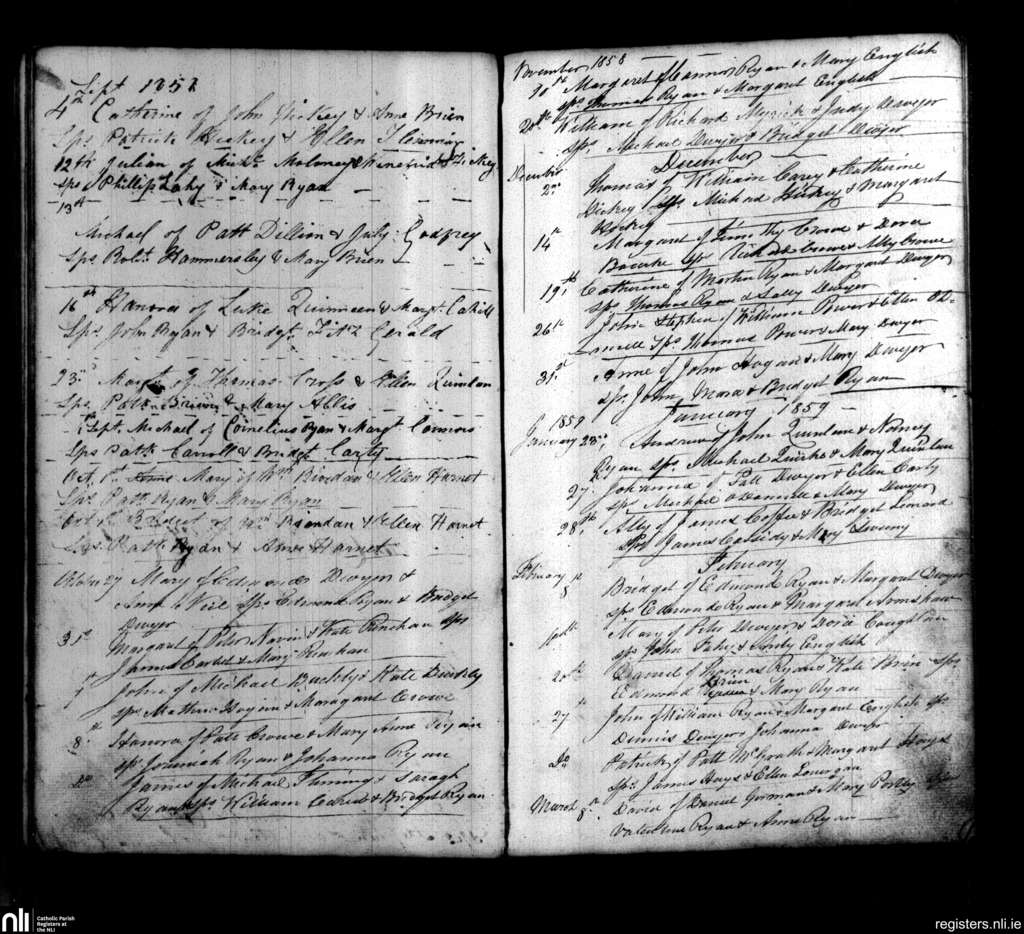 Sept 1858
4th Catherine of John Hickey & Anne Brien
Sps Patrick Hickey & Ellen Fleming
12th Julian of Michl Moloney & Winefrid Hickey
sps Phillip Lahy & Mary Ryan
13th
Michael of Patt Dillion & July Godfrey
Sps Robt Hammersley & Mary Brien
16th Hanora of Luke Quinneen & Margt Cahill
Sps John Ryan & Bridgt Fitz Gerald
23rd Margt of Thomas Cross & Ellen Quinlan
Sps Patt & Mary Allis
Sept Michael of Cornelius Ryan & Margt Connors
Sps Patk Carroll & Bridget Carty
Oct 1st Mary of Wm Riordan & Ellen Harnet
Sps Patt Ryan & Mary Ryan
Oct 1st Bridget of Wm Riordan & Ellen Harnet
Sps Patt Ryan & Anne Harnet
October 29 Mary of Dwyer &
Anne Neil Sps Edmond Ryan & Bridget
Dwyer
31st Margaret of Peter Nevin & Kate Renehan sps
James & Mary Renehan
1st John of Michael Buckly & Kate Buckly
sps Mathew Hogan & Maragaret Crowe
8th Hanora of Patt Crowe & Mary Anne Ryan
sps Jeremiah Ryan & Johanna Ryan
Do James of Michael Fleming & Saragh
Ryan sps William & Bridget Ryan
November 1858
20th Margaret of Connor Ryan & Mary English
sps Thomas Ryan & Margaret English
28th William of Richard Myrick & Judy Dwyer
sps Michael Dwyer & Bridget Dwyer
December
December 2nd Thomas of William Carey & Catherine
Hickey sps Michael Hickey & Margaret
Hickey
14th Margaret of Timothy Crowe & Dora
Bourke sps Richard Crowe & Ally Crowe
19th Catherine of Martin Ryan & Margaret Dwyer
sps Thomas Ryan & Sally Dwyer
26th John Stephen of William Power & Ellen OD-
onnell sps Thomas Power & Mary Dwyer
31st Anne of John Hogan & Mary Dwyer
sps John Mara & Bridget Ryan
January 1859
1859
January 23rd Andrew of John Quinlan & Nancy
Ryan sps Michael & Mary Quinlan
27 Johanna of Patt Dwyer & Ellen Carty
sps Michael O Donnell & Mary Dwyer
28th Ally of James Coffee & Bridget Leonard
Sps James Cassidy & Mary
February
February 8th Bridget of Edmond Ryan & Margaret Dwyer
sps Edmond Ryan & Margaret Armshaw
Mary of Peter Dwyer & Dora Coughlan
sps John & Judy English
20th Daniel of Thomas Ryan & Kate Brien sps
Edmond Brien & Mary Ryan
27th John of William Ryan & Margaret English sps
Dennis Dwyer & Johanna Dwyer
Do Patrick of Patt McGrath & Margaret Hayes
Sps James Hays & Ellen Lonergan
March 8th David of Daniel Gorman & Mary sps
Valentine Ryan & Anne Ryan
nli
Catholic Parish
Registers at
the NLI
registers.nli.ie